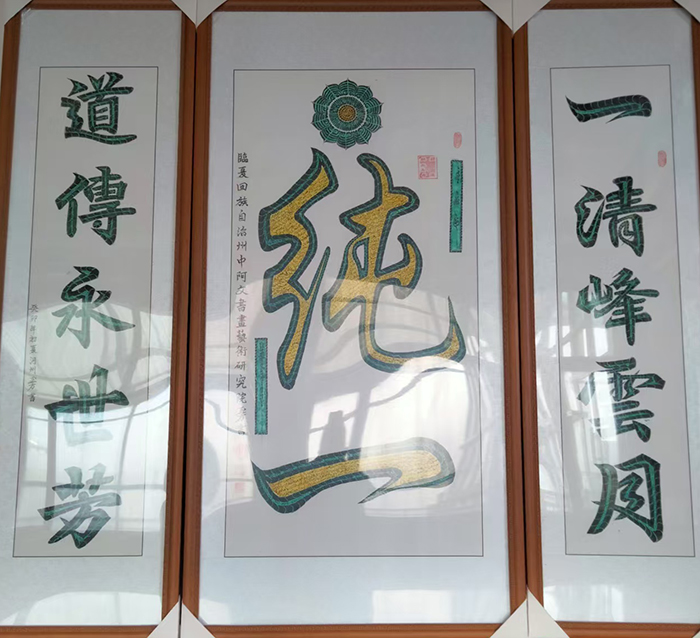 一清峰雲月
純一
臨夏回族自治州中阿文書畫藝術研究院
道傳永世芳
癸卯年初夏